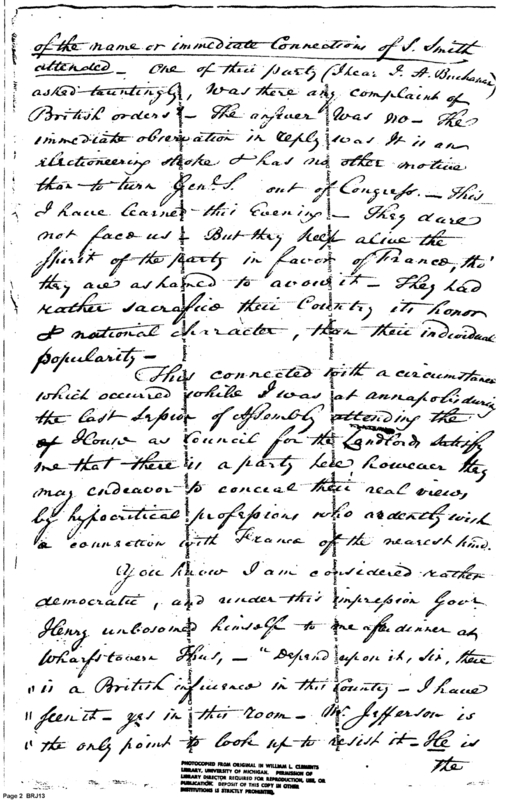 of the name or immediate Connections of S. Smith
attended — One of their party (I hear J. A. Buchanan)
asked tauntingly, was there any complaint of
British orders? — The answer was no — The
immediate observation in reply was It is an
electioneering stroke & has no other motive
than to turn Genl. S. out of Congress. — This
I have learned this Evening — They dare
not face us — But they keep alive the
Spirit of the party in favor of France, tho'
they are ashamed to avow it — They had
rather sacrafice their Country its honor
& national character, than their individual
popularity —
This connected with a circumstance
which occurred while I was at annapolis during
the last Session of Assembly attending the
House as Council for the Landlords satisfy
me that there is a party here, however they
may endeavor to conceal their real views
by hypocritical professions who ardently wish
a connection with France of the nearest kind.
You know I am considered rather
democratic, and under this impression Govr
Henry unbosomed himself to me after dinner at
Wharfs tavern Thus, — "Depend upon it, Sir, there
" is a British influence in this Country — I have
" seen it — yes in this room — Mr Jefferson is
" the only point to look up to resist it — He is
the
PHOTOCOPIED FROM ORIGINAL IN WILLIAM L. CLEMENTS
LIBRARY, UNIVERSITY OF MICHIGAN. PERMISSION OF
LIBRARY DIRECTOR REQUIRED FOR REPRODUCTION, USE, OR
PUBLICATION. DEPOSIT OF THIS COPY IN OTHER
INSTITUTIONS IS STRICTLY PROHIBITED.
Page 2 BRJ13